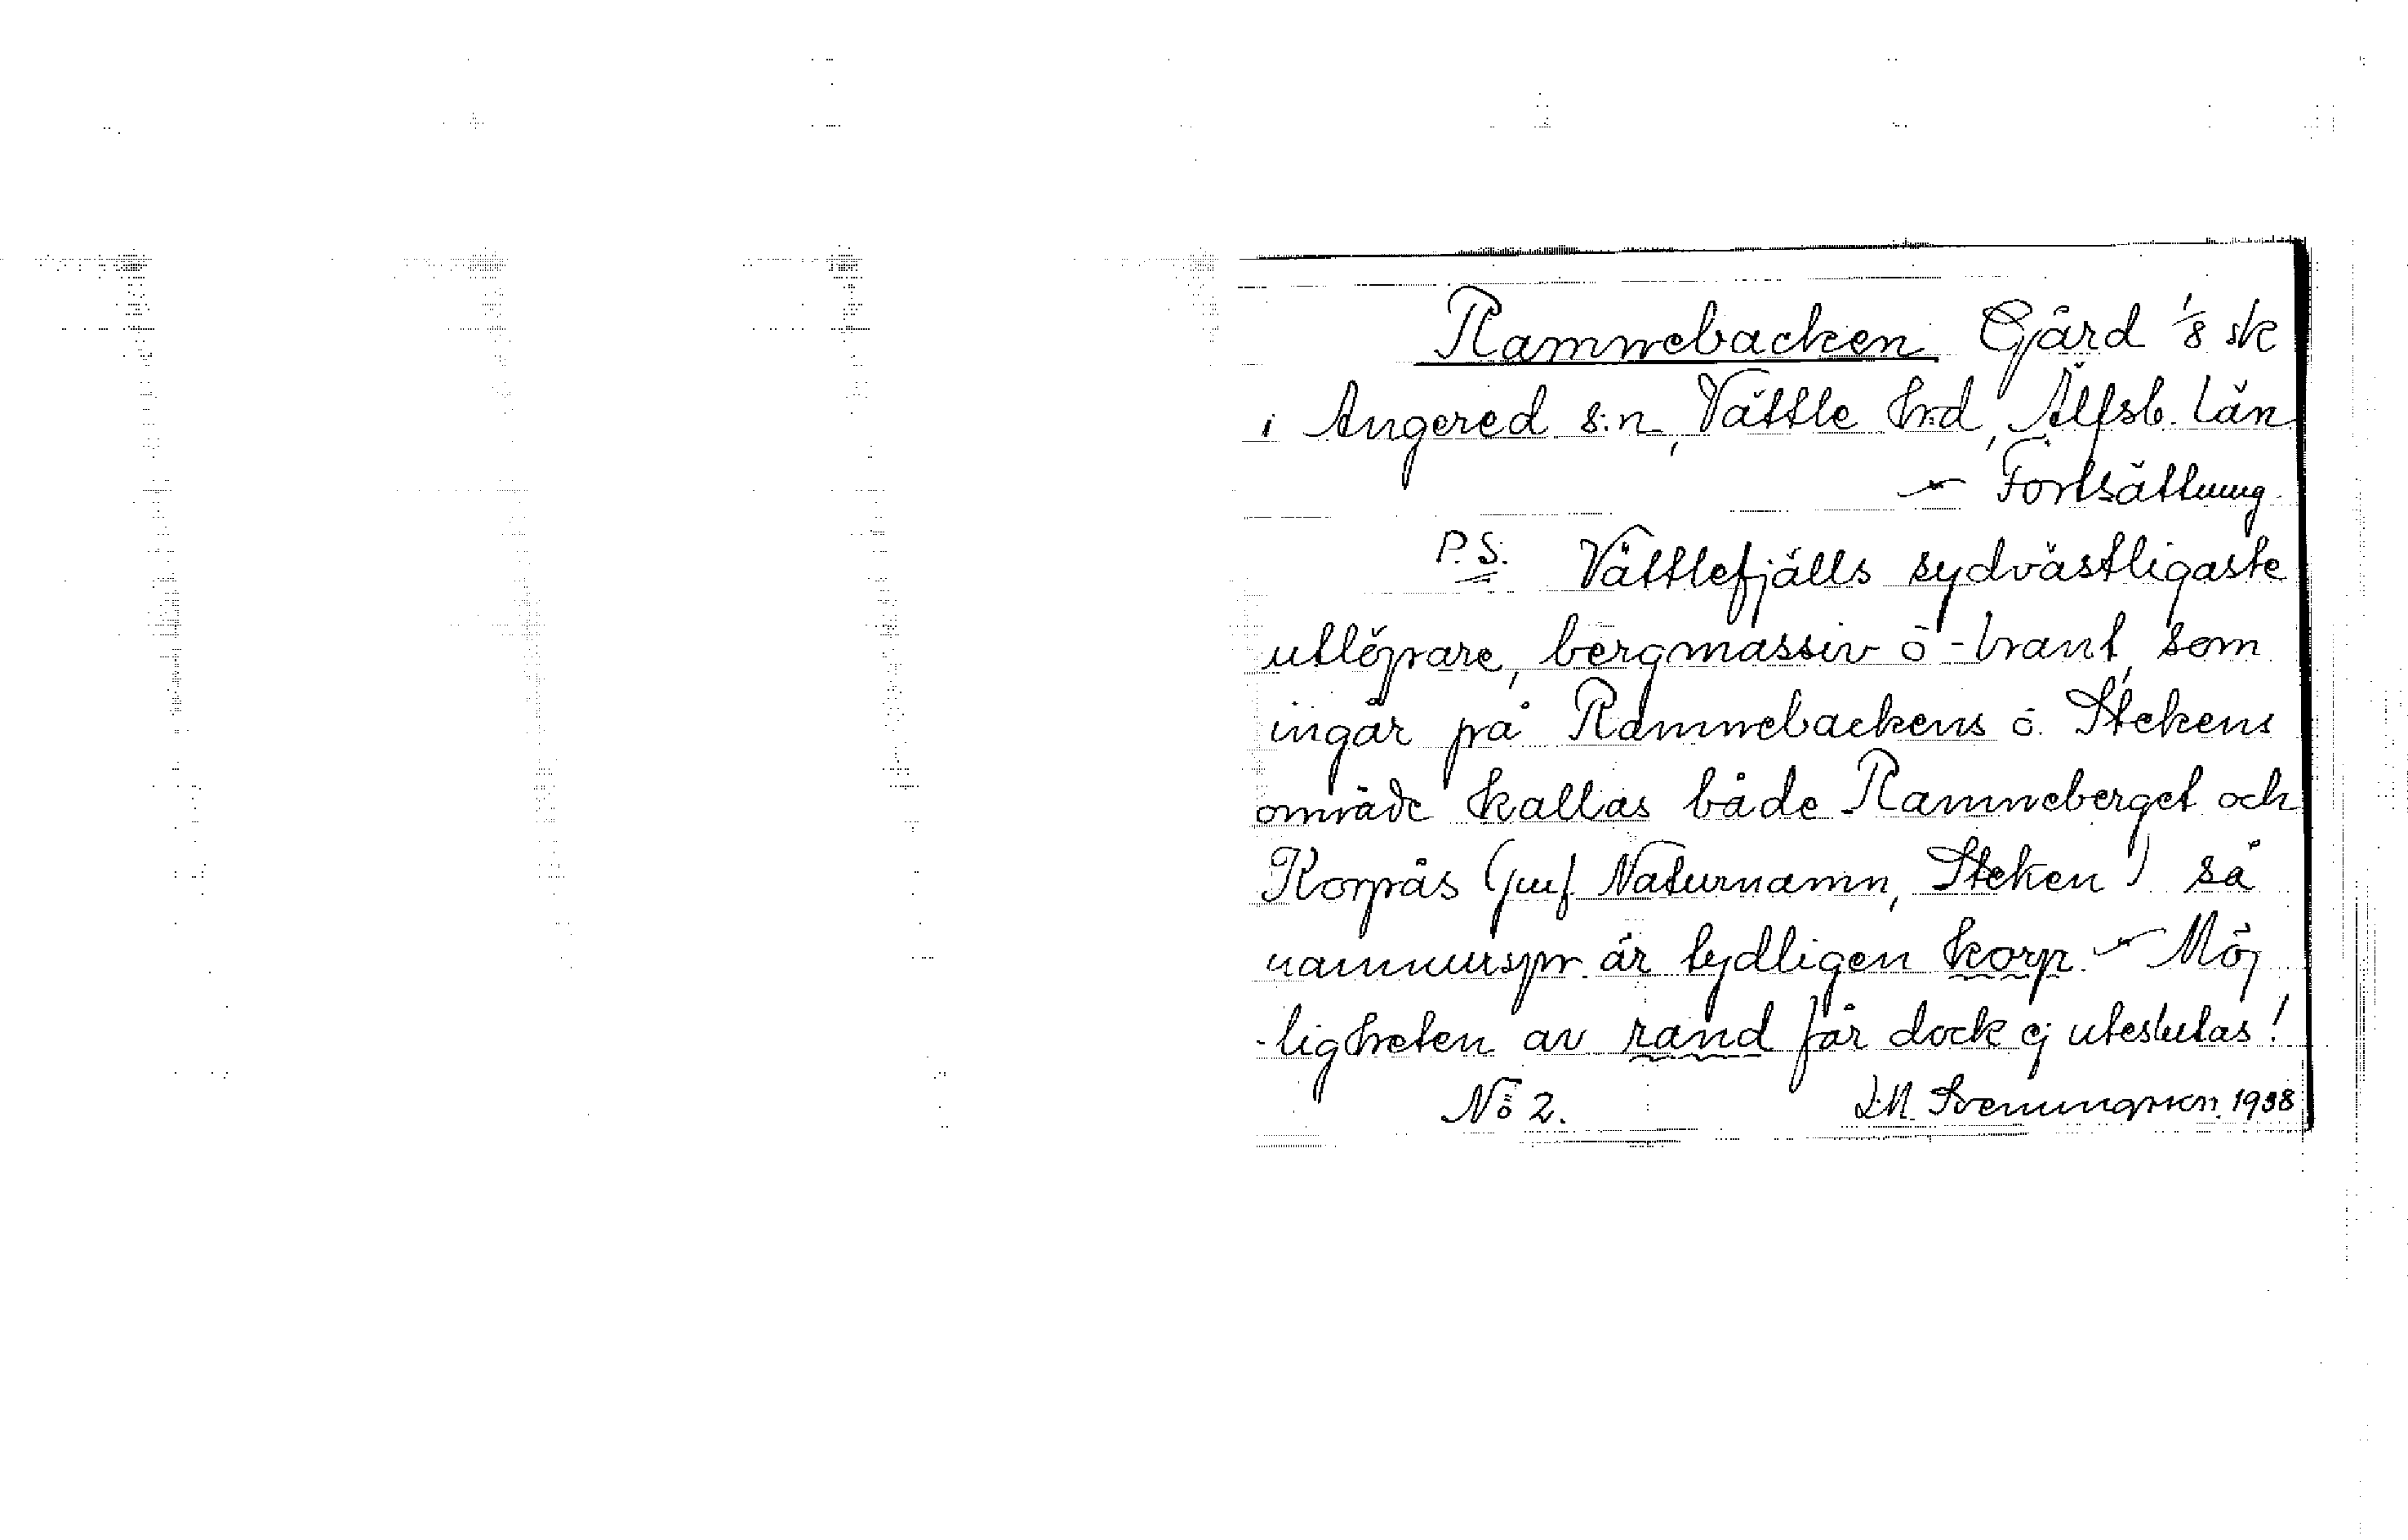 Ramnebacken Gård 1/8 sk
i Angered s:n, Vättle hd, Älfsb. län
- Fortsättning
P.S. Vättlefjälls sydvästligaste
utlöpare, bergmassiv o-brant, som
ingår på Ramnebackens o. Stekens
område kallas både Ramneberget och
Korpås (jmf. Naturnamn, Steken) så
namnurspr. är tydligen korp. - Möj
-ligheten av rand får dock ej uteslutas!
No 2. Svenungsson 1938